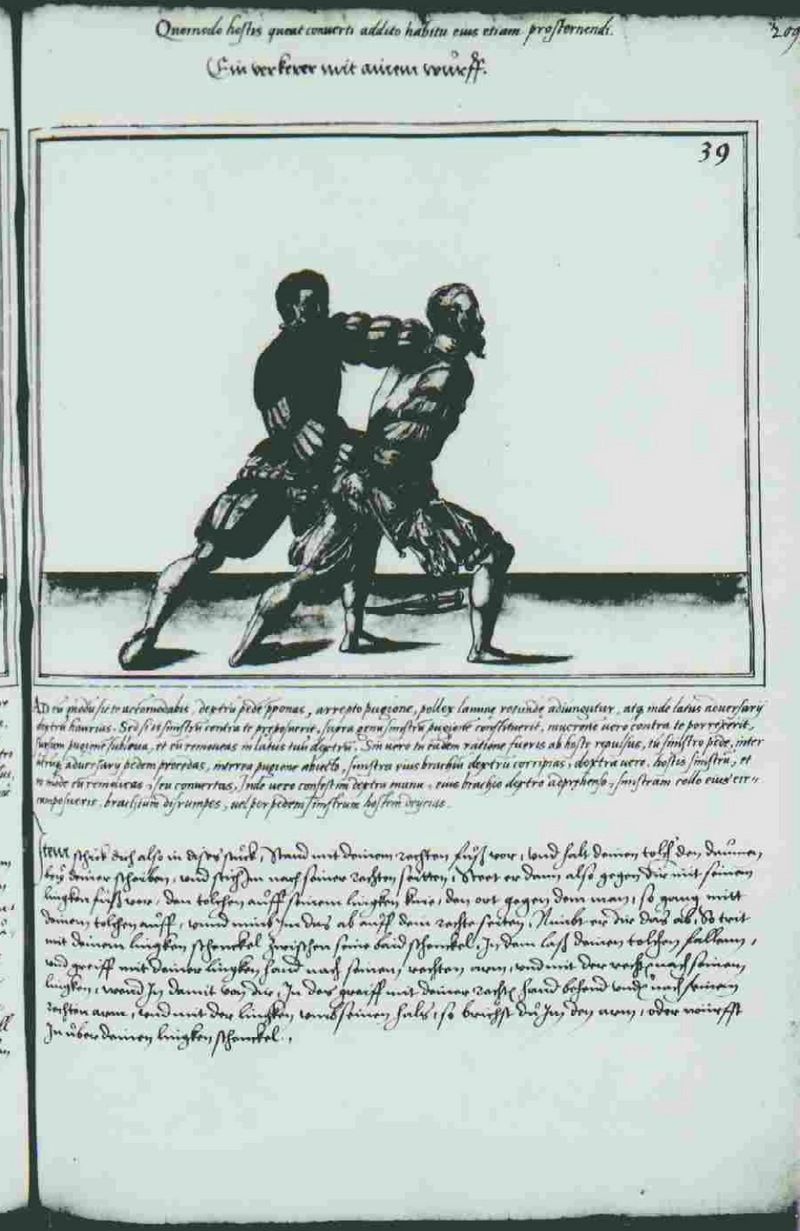 Quomodo hostis queat converti addito habitu eius etiam prosternendi.
209
Ein verkerer mit ainem wurff.
39
Ad eũ modũ sic te accomodabis, dextrũ pedẽ pponas, arrepto pugione, pollex laminę rotundę adiungatur, atq, inde latus adversarij
dextrũ haurias. Sed si is sinistrũ contra te preposuerit, supra genu sinistrũ pugionẽ constituerit, mucronẽ vero contra te porrexerit,
tuum pugionẽ subleva, et eũ removeas in latus tuũ dextrũ. Sin vero tu eadem ratione fueris ab hoste repulsus, tũ sinistro pede, inter
utrũq, adversarij pedem procedas, interea pugione abiecto, sinistra eius brachiũ dextrũ corripias, dextra vero, hostis sinistrũ, et
eo modo eũ removeas, seu convertas, Inde vero confestim dextra manu, eius brachio dextro adprehenso, sinistram collo eius cir-
cumposueris, brachium disrumpes, vel per pedem sinistrum hostem deijcias.
Item schick dich also in dises stuck, Stand mit deinem rechten fuß vor, und halt deinen tolch den daumen
bey deiner scheiben, und stich Im nach seiner rechten seitten, Steet er dann also gegen dir mit seinem
lingken fuß vor, den tolchen auff seinem lingken knie, den ort gegen dem man, so gang mitt
deinem tolchen auff, unnd nimb Im das ab auff dein rechte seiten, Nimbt er dir das ab, So trit
mit deinem lingken schenckel zwischen seine baid schenckel, In dem laß deinen tolchen fallenn,
und greiff mit deiner lingken hand nach seinem rechten arm, und mit der rechten nach seinem
lingken, wend In damit von dir, In des greiff mit deiner rechten hand behend nach seinem
rechten arm, und mit der lingken umb seinen hals, so brichst du Im den arm, oder wurffst
In über deinen lingken schenckel.